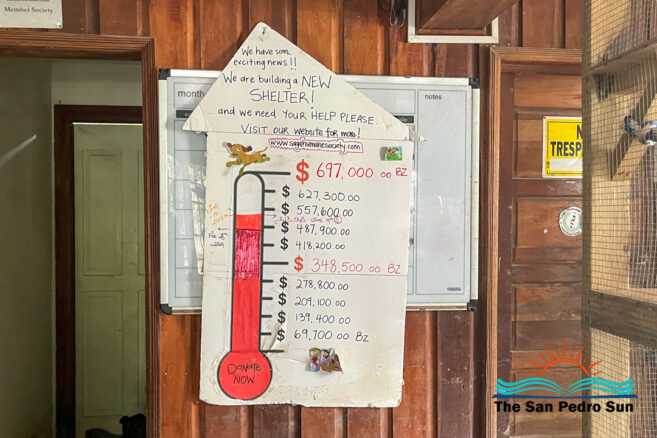 Member Society
We have some
exciting news!!
We are building a NEW
SHELTER!
... and we need YOUR HELP PLEASE.
VISIT our website for more!
www.sagahumanesociety.com
month
notes
$ 697,000.00 BZ
$ 627,300.00
$ 557,600.00
$ 487,900.00
$ 418,200.00
$ 348,500.00 BZ
$ 278,800.00
$ 209,100.00
$ 139,400.00
$ 69,700.00 BZ
DONATE
NOW
TRESP
The San Pedro Sun